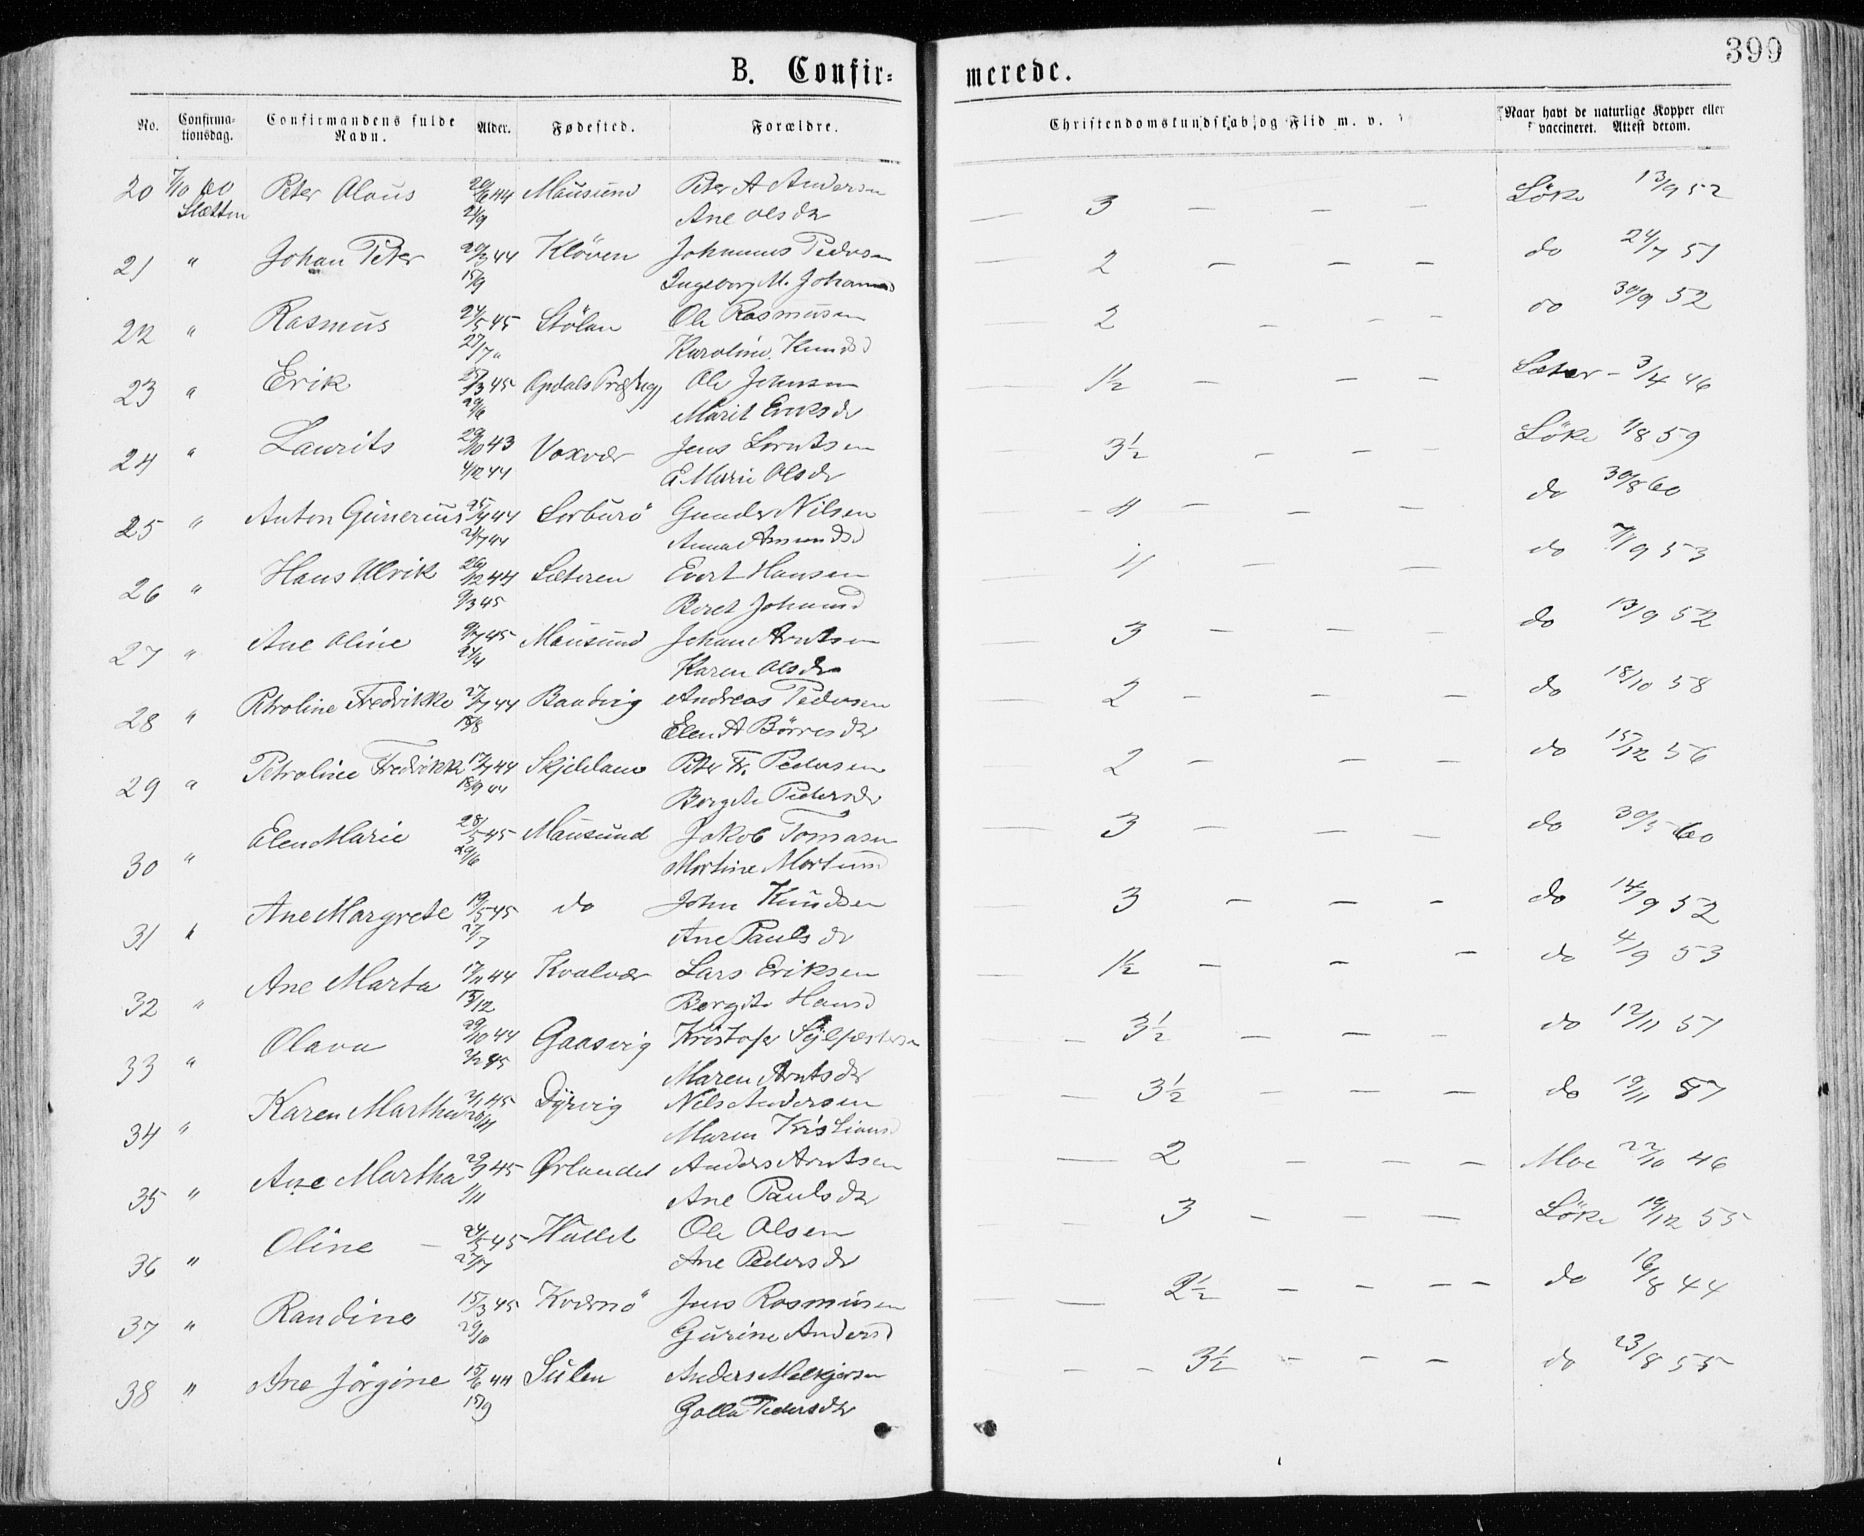 399
B. Confir= merede.
No. Confirma-tionsdag. Confirmandens fulde Navn. Alder. Fødested. Forældre. Christendomskundskab og Flid m. v. Naar havt de naturlige Kopper eller vaccineret. Attest derom.
20 7/10 60 Peter Olaus Mausund Peter A Andersen 3 — — — Löke 13/9 52
Slettin 21/9 Ane Olsdr
21 " Johan Peter 20/3 44 Klöven Johannes Pedersen 2 — — — do 24/7 51
15/9 Ingeborg M. Johannsd
22 " Rasmus 24/5 45 Stölan Ole Rasmusen 2 — — — do 30/9 52
27/7 " Karoline Knudsd
23 " Erik 25/3 45 Opdals Præstegj Ole Johnsen 1½ — — — Sæter – 3/4 46
29/6 Marit Eriksdr
24 " Laurits 29/10 43 Voxvær Jens Lorntsen 3½ — — — Löke 1/8 59
4/10 44 E Marie Olsdr
25 " Anton Gunerius 25/4 44 Sorburö Gunder Nilsen 4 — — — do 30/8 60
21/7 44 Anna Amundsd
26 " Hans Ulrik 26/12 44 Sæteren Evert Hansen 4 — — — do 7/9 53
9/3 45 Beret Johansd
27 " Ane Oline 9/7 45 Mausund Johan Arntsen 3 — — — do 13/9 52
Karen Olsdr
28 " Petroline Fredrikke 27/7 44 Bandvig Andreas Pedersen 2 — — — do 18/10 58
18/8 Elen A Börresdr
29 " Petroline Fredrikke 17/7 44 Skjeldam Peter Fr. Pedersen 2 — — — do 15/12 56
15/9 44 Bergite Pedersdr
30 " Elen Marie 28/5 45 Mausund Jakob Tomasen 3 — — — do 30/5 60
29/6 Martine Martinsd
31 " Ane Margrete 19/5 45 do John Knudsen 3 — — — do 14/9 52
27/7 Ane Paulsdr
32 " Ane Marta 17/11 44 Kvalvær Lars Eriksen 1½ — — — do 4/9 53
15/12 Bergite Hansd
33 " Olava 29/10 44 Gaasvig Kristofer Sylfestersen 3½ — — — do 12/11 51
2/2 45 Maren Arntsdr
34 " Karen Martha Dyrvig Nils Andersen 3½ — — — do 19/11 57
Maren Kristiansd
35 " Ane Martha 29/7 45 Ørlandet Anders Arntsen 2 — — — Moe 22/10 46
1/11 Ane Paulsdr
36 " Oline – 24/5 45 Hallet Ole Olsen 3 — — — Löke 19/12 55
27/7 Ane Pedersdr
37 " Randine 15/3 45 Kvernö Jens Rasmusen 2½ — — — — do 16/8 44
29/6 Gurine Andersd
38 " Ane Jörgine 15/6 44 Sulen Anders Melkjorsen 3½ — — — do 23/8 55
15/9 Golla Pedersdr